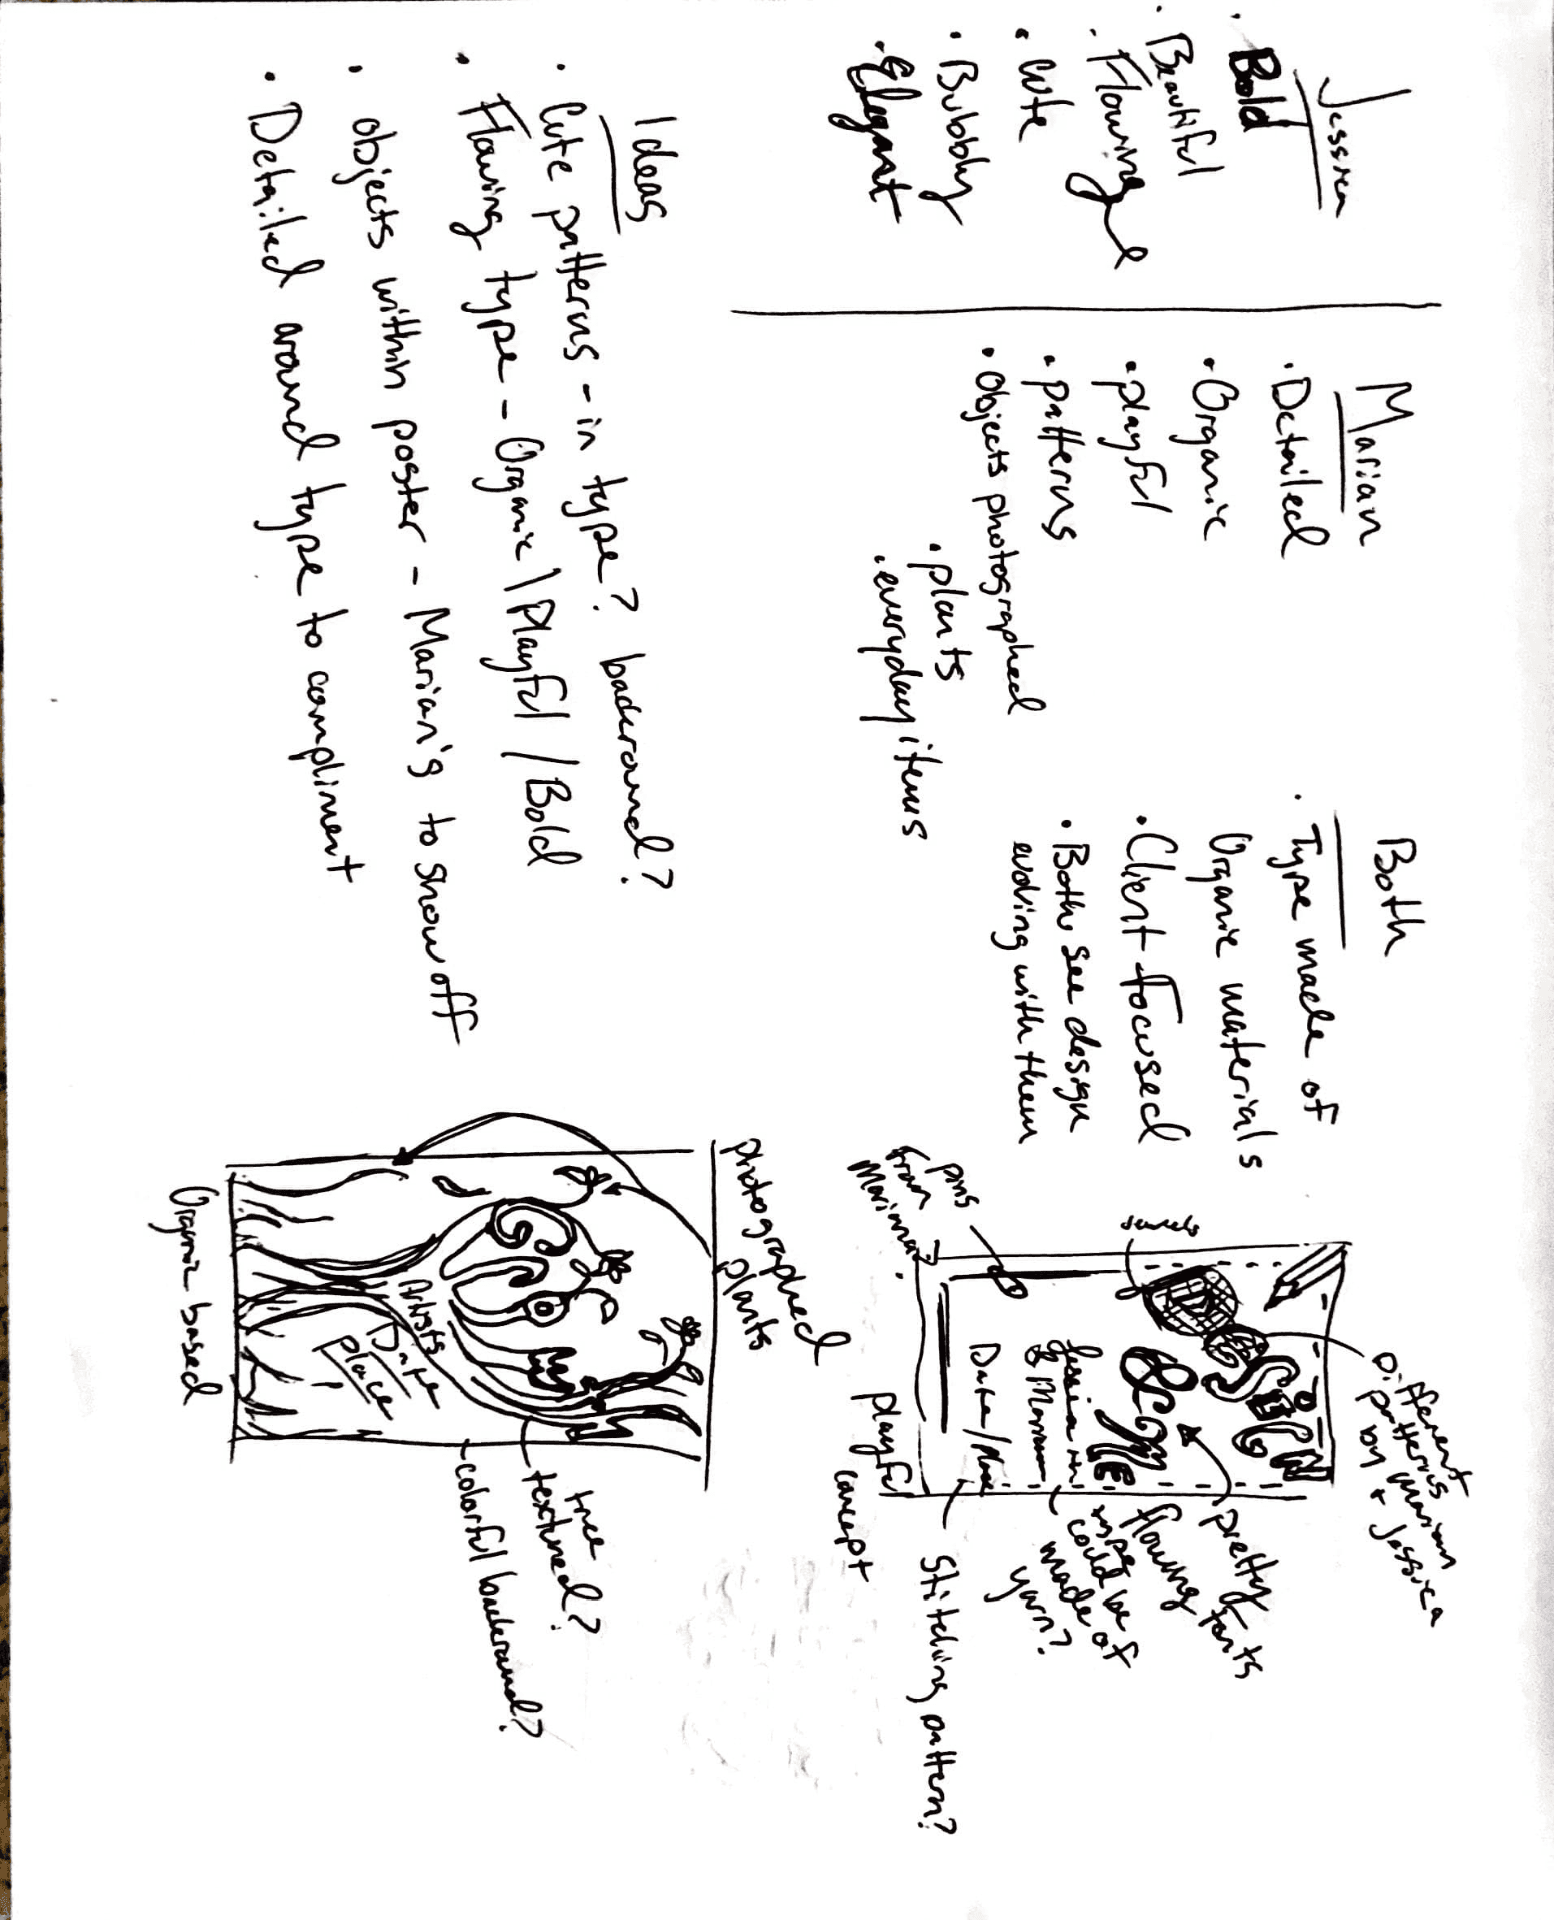 Jessica
• Bold
• Beautiful
• Flowing
• Cute
• Bubbly
• Elegant
Marian
• Detailed
• Organic
• playful
• patterns
• Objects photographed
• plants
• everyday items
Both
• Type made of
Organic materials
• Client focused
• Both see design
evolving with them
Ideas
• Cute patterns - in type? backround?
• Flowing type - Organic / Playful / Bold
• objects within poster - Marian's to show off
• Detailed around type to compliment
Different
patterns
by Marian
+ Jessica
pretty
flowing
fonts
could be
made of
yarn?
Stitching pattern?
playful
concept
pins
from
Marian?
Date / Place
photographed
plants
Artists
Date
place
tree
textured?
colorful backround?
Organic based